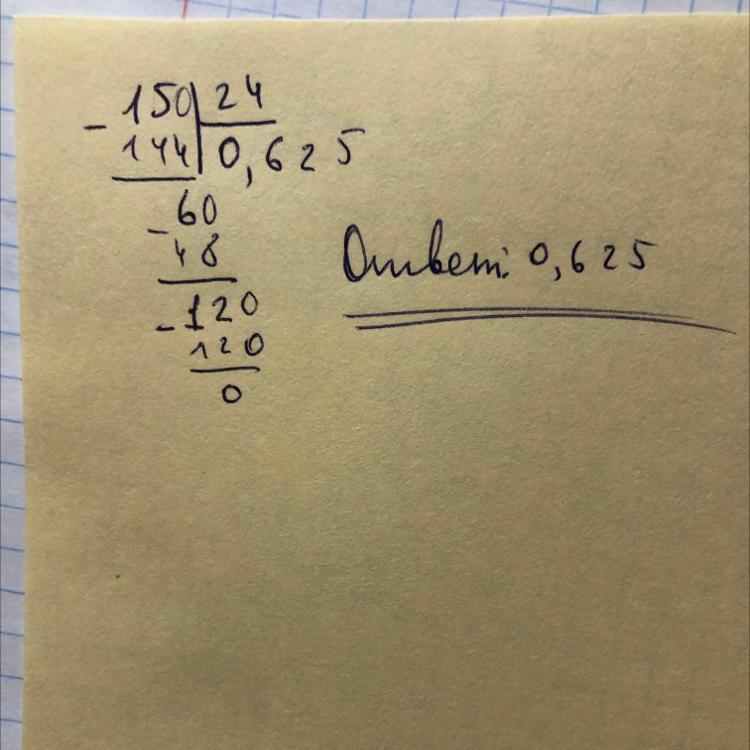 150 24
- 144 0,625
60
- 48
- 120
120
0
Ответ: 0,625